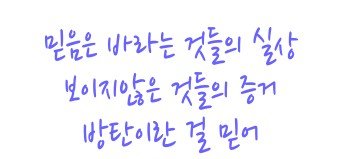 믿음은 바라는 것들의 실상
보이지않은 것들의 증거
방탄이란 걸 믿어